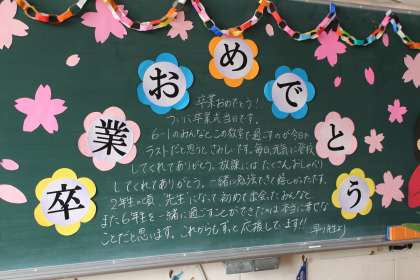 卒業おめでとう
卒業おめでとう!
ついに卒業式当日です。
6-1のみんなとこの教室で過ごすのが今日
ラストだと思うとさみしいです。毎日元気に登校
してくれてありがとう。放課後にはたくさんおしゃべり
してくれてありがとう。一緒に勉強できて嬉しかったです。
2年生の頃、先生になって初めて出会ったみんなと
また6年生を一緒に過ごすことができたのは本当に幸せな
ことだと思います。これからもずっと応援してます!!
より